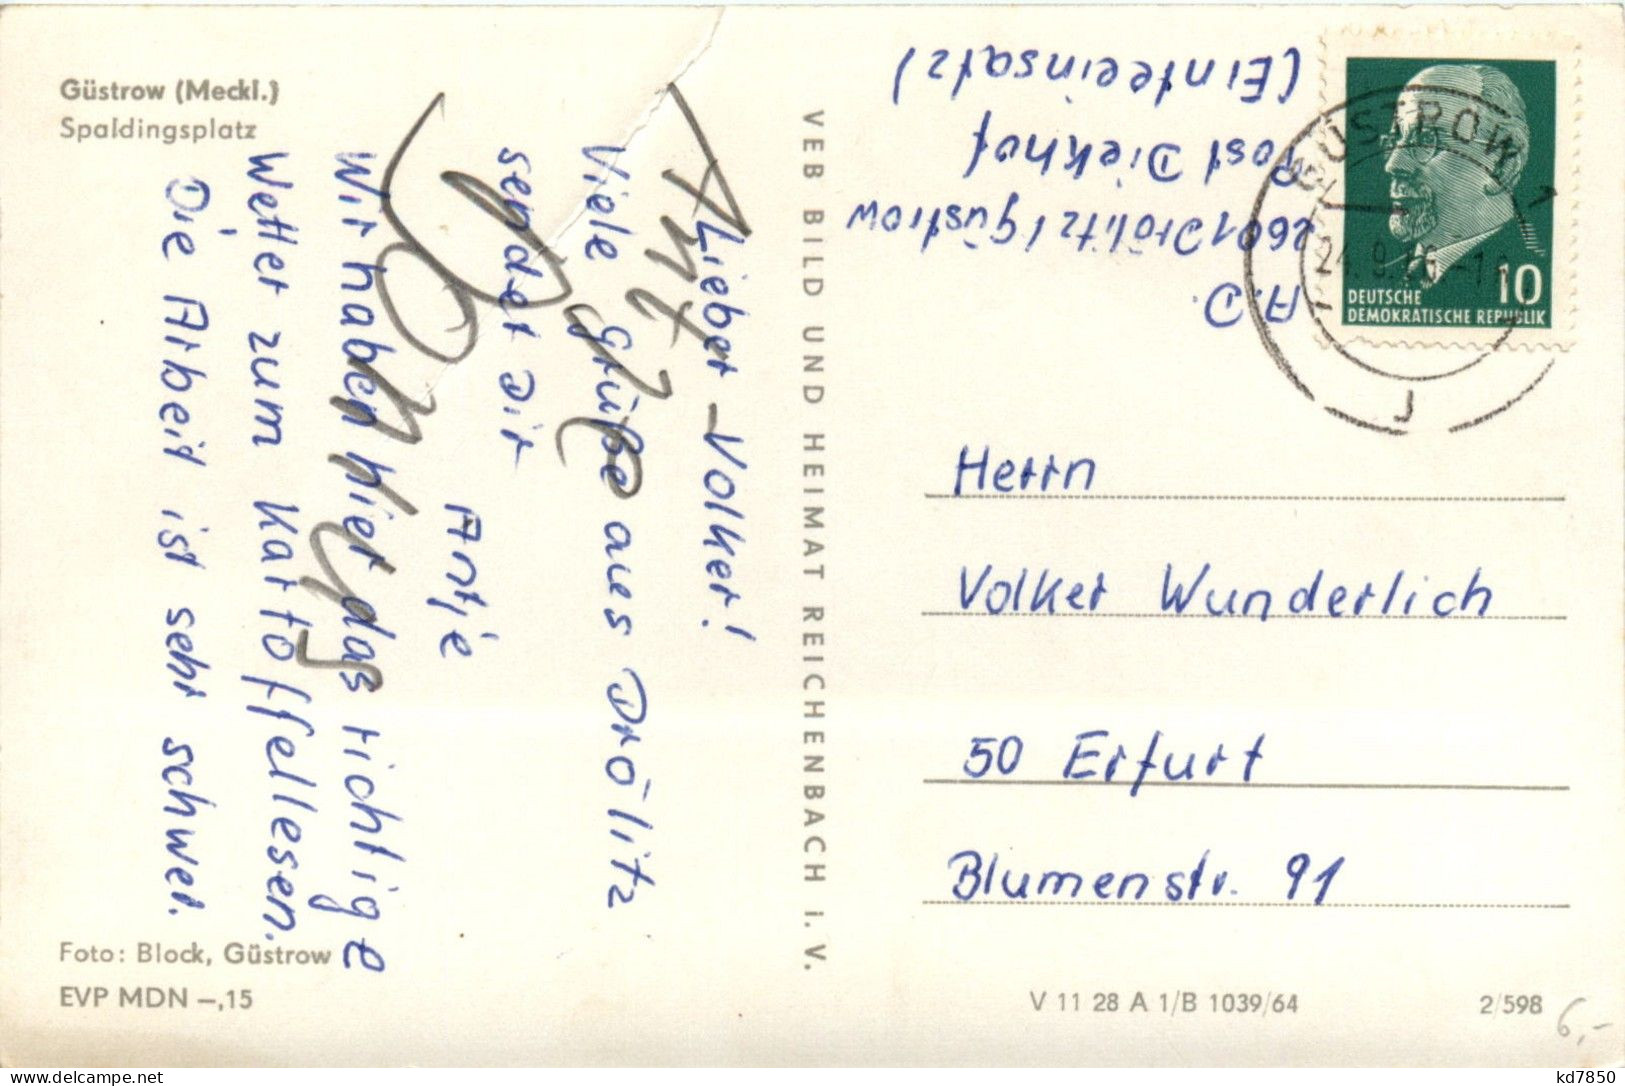 Güstrow (Meckl.)
Spaldingsplatz
Lieber Volker!
Viele Grüße aus Drölitz
sendet Dir
Antje
Wir haben hier das richtige
Wetter zum Kartoffellesen.
Die Arbeit ist sehr schwer.
Foto: Block, Güstrow
EVP MDN –,15
VEB BILD UND HEIMAT REICHENBACH I. V.
A.D.
2601 Drölitz / Güstrow
Post Diekhof
(Ernteeinsatz)
GÜSTROW 1
24.9.
DEUTSCHE
DEMOKRATISCHE REPUBLIK
10
Herrn
Volker Wunderlich
50 Erfurt
Blumenstr. 91
V 11 28 A 1/B 1039/64
2/598
6,-
kd7850